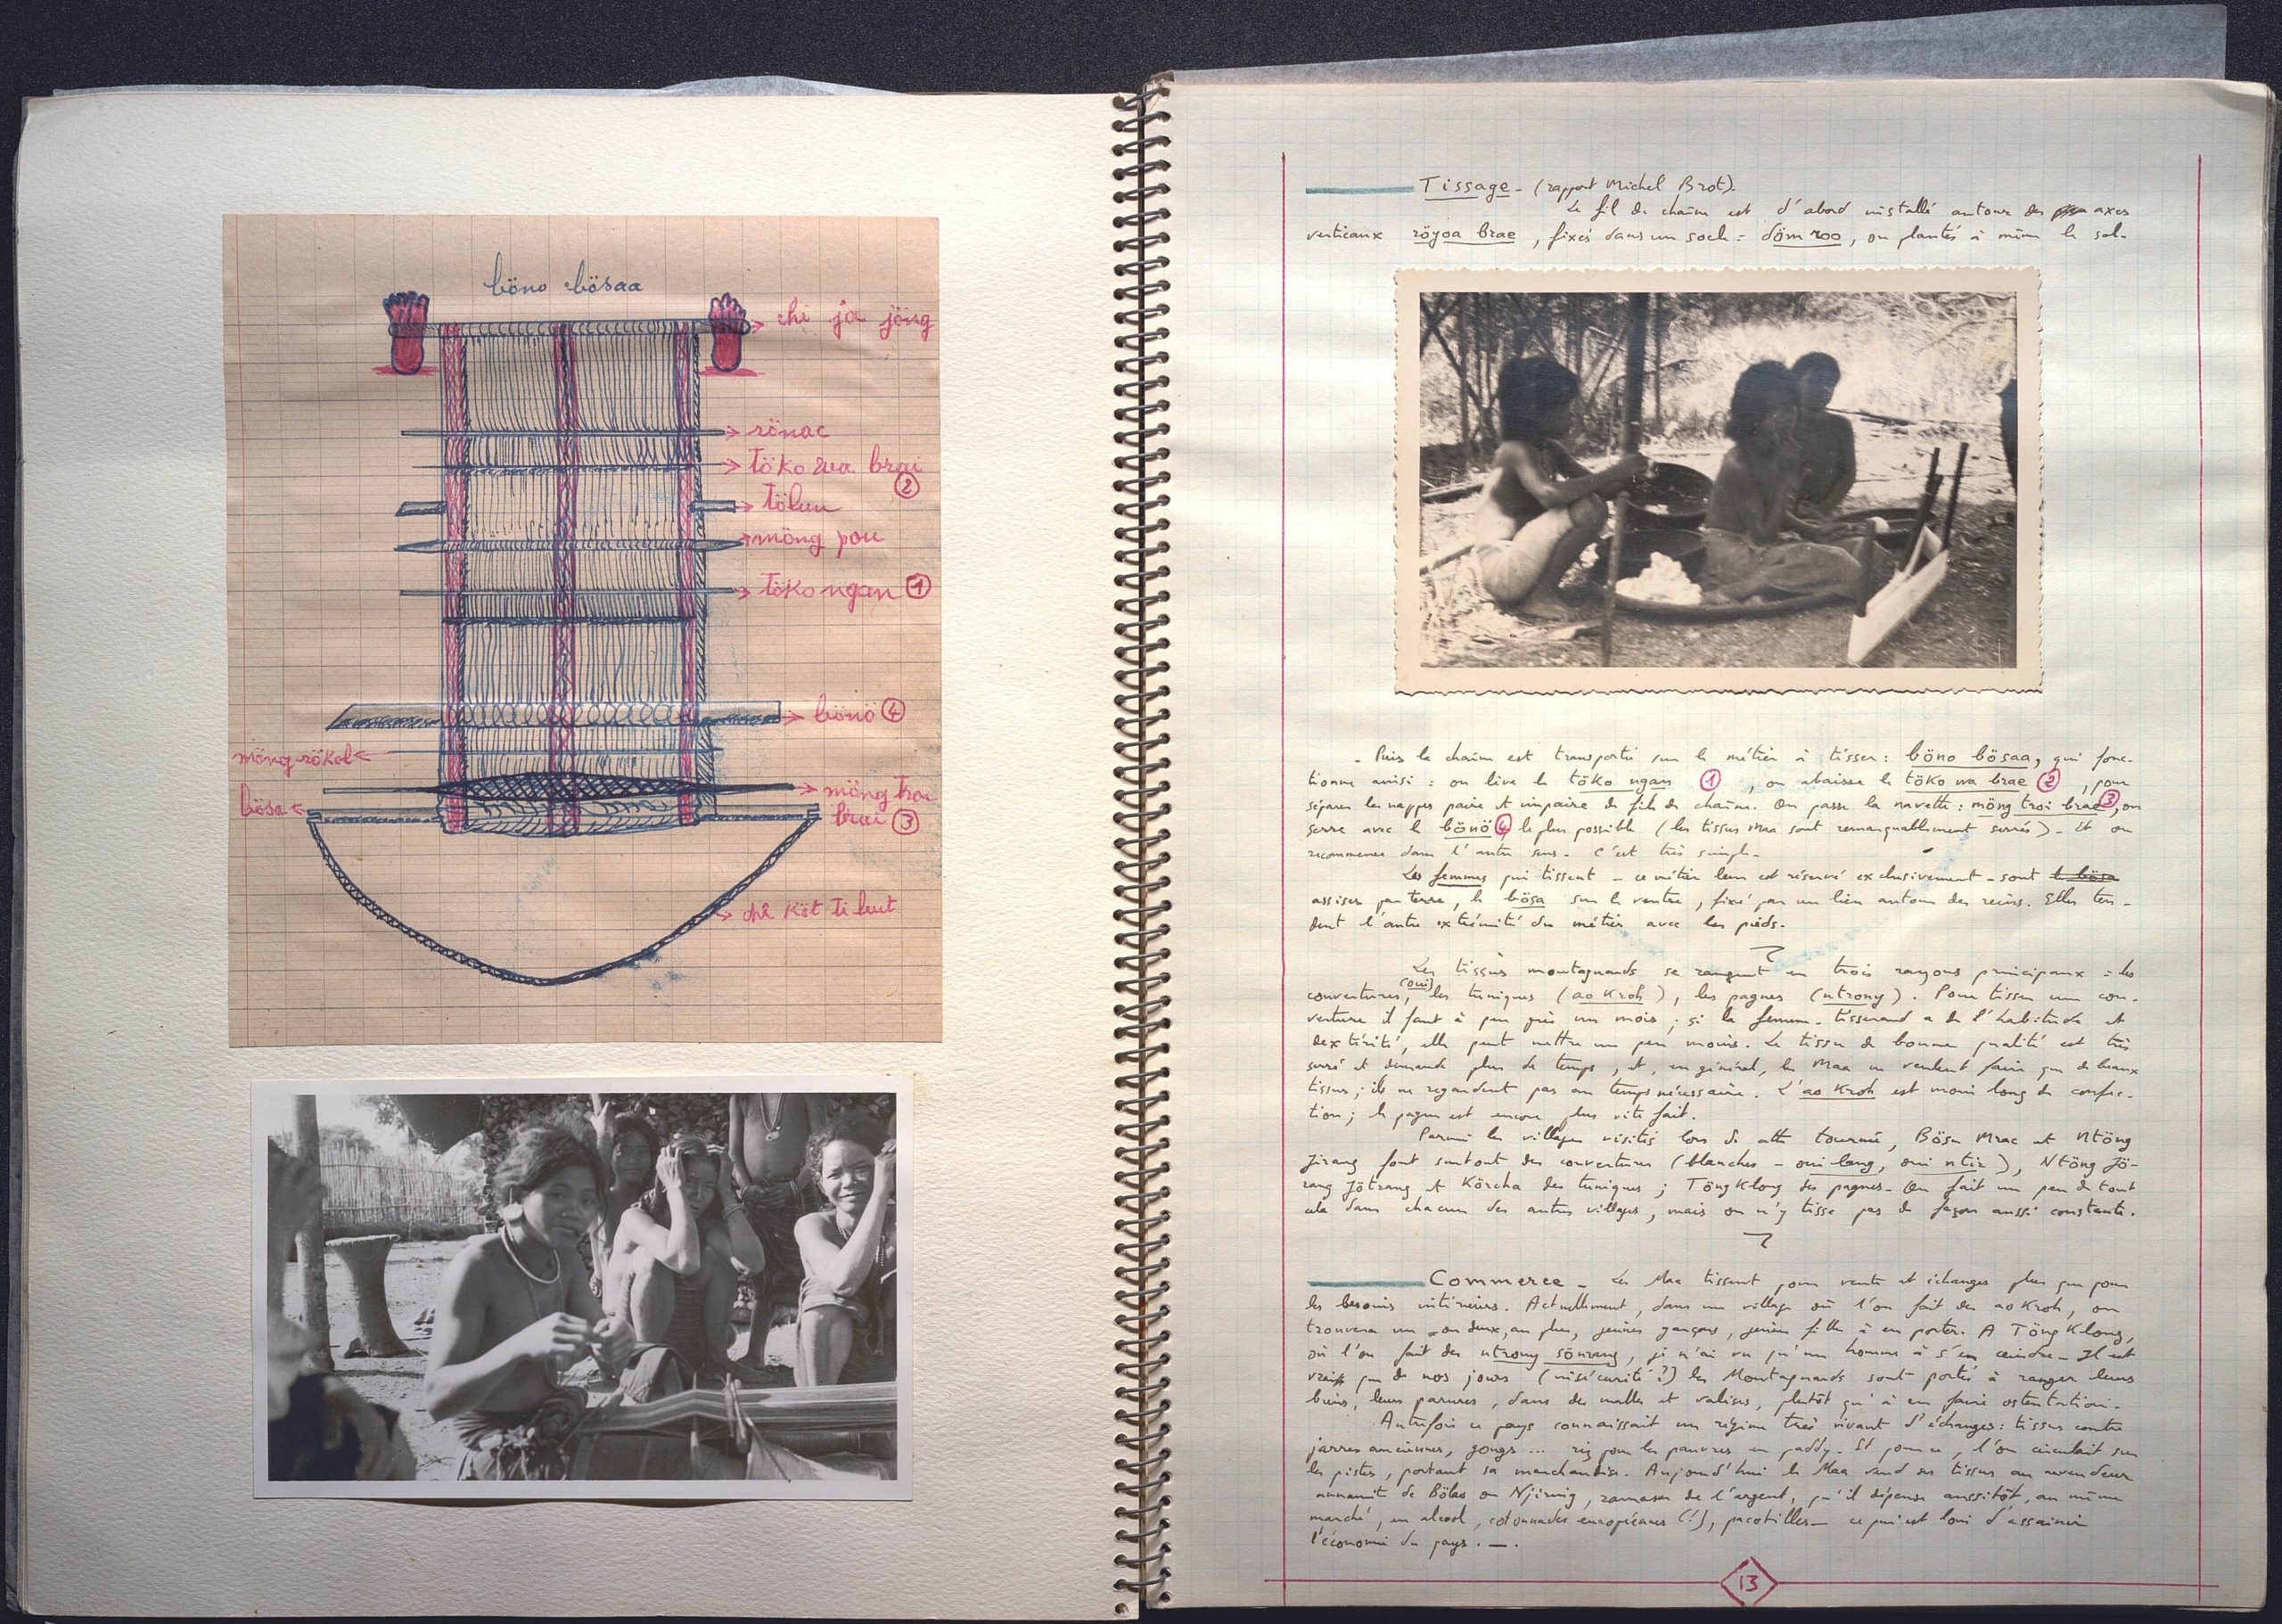 böno bösaa
chi ja jöng
rönac
töko wa brai
②
tölun
möng pou
töko ngan ①
bönö ④
möng rökol
möng troi
bösa
brai ③
chê köt ti but
Tissage - (rapport Michel Brot).
Le fil de chaîne est d'abord installé autour des axes
verticaux röyoa brae, fixés dans un socle : döm roo, ou plantés à même le sol.
- Puis la chaîne est transportée sur le métier à tisser : böno bösaa, qui fonc-
tionne ainsi : on lève le töko ngan ①, on abaisse le töko wa brae ②, pour
séparer les nappes paire et impaire de fils de chaîne. On passe la navette : möng troi brae ③, on
serre avec le bönö ④ le plus possible (les tissus Maa sont remarquablement serrés) - Et on
recommence dans l'autre sens. C'est très simple.
Les femmes qui tissent - ce métier leur est réservé exclusivement - sont le bösa
assises par terre, le bösa sur le ventre, fixé par un lien autour des reins. Elles ten-
dent l'autre extrémité du métier avec les pieds.
Les tissus montagnards se rangent en trois rayons principaux : les
couvertures, (oui) les tuniques (ao kroh), les pagnes (ntrony). Pour tisser une cou-
verture il faut à peu près un mois ; si la femme-tisserand a de l'habitude et
dextérité, elle peut mettre un peu moins. Le tissu de bonne qualité est très
serré et demande plus de temps, et, en général, les Maa ne veulent faire que de beaux
tissus ; ils ne regardent pas au temps nécessaire. L'ao kroh est moins long de confec-
tion ; le pagne est encore plus vite fait.
Parmi les villages visités lors de cette tournée, Bösu Mrac et Ntöng
Jirang font surtout des couvertures (blanches - oui lang, oui ntir), Ntöng Jö-
rang Jötrang et Körcha des tuniques ; Töng Klong des pagnes. On fait un peu de tout
cela dans chacun des autres villages, mais on n'y tisse pas de façon aussi constante.
Commerce - Les Maa tissent pour vente et échanges plus que pour
les besoins intérieurs. Actuellement, dans un village où l'on fait des ao kroh, on
trouvera un ou deux, au plus, jeunes garçons, jeunes filles à en porter. A Töng Klong,
où l'on fait des ntrony sönrang, je n'ai vu qu'un homme à s'en ceindre - Il est
vrai que de nos jours (insécurité ?) les Montagnards sont portés à ranger leurs
biens, leurs parures, dans des malles et valises, plutôt qu'à en faire ostentation.
Autrefois ce pays connaissait un régime très vivant d'échanges : tissus contre
jarres anciennes, gongs ... riz pour les pauvres en paddy. Et pour ce, l'on circulait sur
les pistes, portant sa marchandise. Aujourd'hui le Maa vend ses tissus au revendeur
annamite de Bölao ou Njiring, ramasse de l'argent, qu'il dépense aussitôt, au même
marché, en alcool, cotonnades européennes (!), pacotilles - ce qui est loin d'assainir
l'économie du pays. -.
13